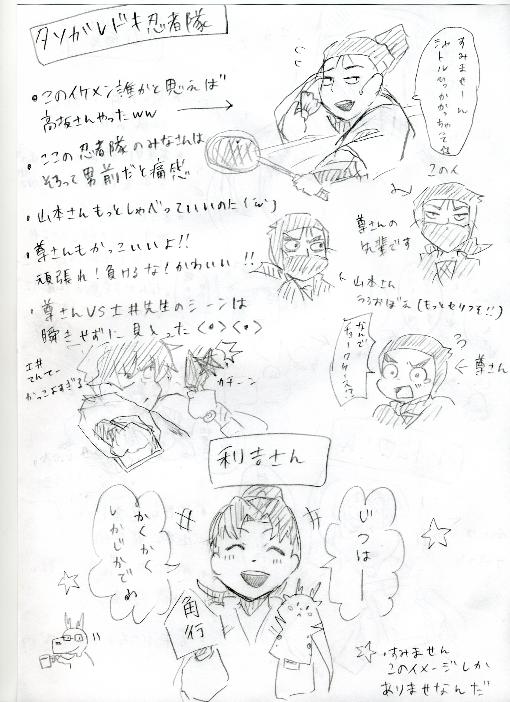 タソガレドキ忍者隊
・このイケメン誰かと思えば
高坂さんやったww
・ここの忍者隊のみなさんは
そろって男前だと痛感
・山本さんもっとしゃべっていいのに(´ω`)
・尊さんもかっこいいよ!!
頑張れ!負けるな!かわいい!!
・尊さんVS土井先生のシーンは
瞬きせずに見入った<◎><◎>
すみませーん
シャトルひっかかっちゃって
この人
尊さんの
先輩です
山本さん
うろおぼえ(もっとセリフを!!)
なんで
チョークケース!?
←尊さん
土井
てんてー
かっこよすぎる
ガチーン
利吉さん
じつはー
かくかく
しかじかでね
角行
すみません
このイメージしか
ありませなんだ